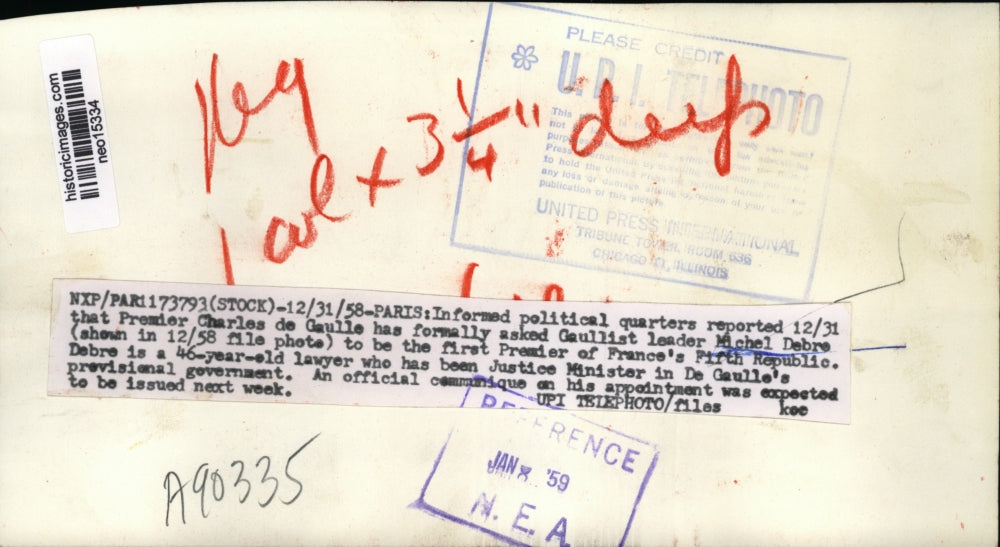 historicimages.com
neo15334
PLEASE CREDIT
U.P.I. TELEPHOTO
This
not
to hold the United Press
any loss or damage arising by reason of your use
publication of this picture.
UNITED PRESS INTERNATIONAL
TRIBUNE TOWER, ROOM 636
CHICAGO 11, ILLINOIS
1 col x 3 1/4" deep
NXP/PAR1173793(STOCK)-12/31/58-PARIS:Informed political quarters reported 12/31
that Premier Charles de Gaulle has formally asked Gaullist leader Michel Debre
(shown in 12/58 file photo) to be the first Premier of France's Fifth Republic.
Debre is a 46-year-old lawyer who has been Justice Minister in De Gaulle's
provisional government. An official communique on his appointment was expected
to be issued next week.
UPI TELEPHOTO/files kee
REFERENCE
JAN 8 '59
N. E. A.
A90335